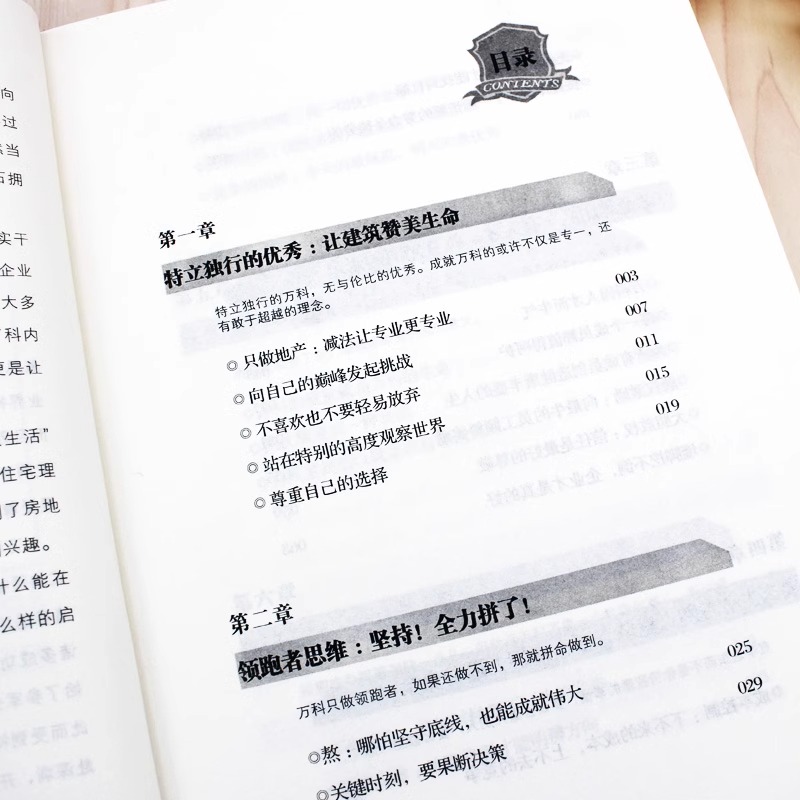 向
过
当
石拥
实干
企业
大多
科内
更是让
生活”
住宅理
了房地
兴趣。
什么能在
么样的启
目录
CONTENTS
第一章
特立独行的优秀：让建筑赞美生命
特立独行的万科，无与伦比的优秀。成就万科的或许不仅是专一，还
有敢于超越的理念。
◎只做地产：减法让专业更专业 003
◎向自己的巅峰发起挑战 007
◎不喜欢也不要轻易放弃 011
◎站在特别的高度观察世界 015
◎尊重自己的选择 019
第二章
领跑者思维：坚持！全力拼了！
万科只做领跑者，如果还做不到，那就拼命做到。
◎熬：哪怕坚守底线，也能成就伟大 025
◎关键时刻，要果断决策 029